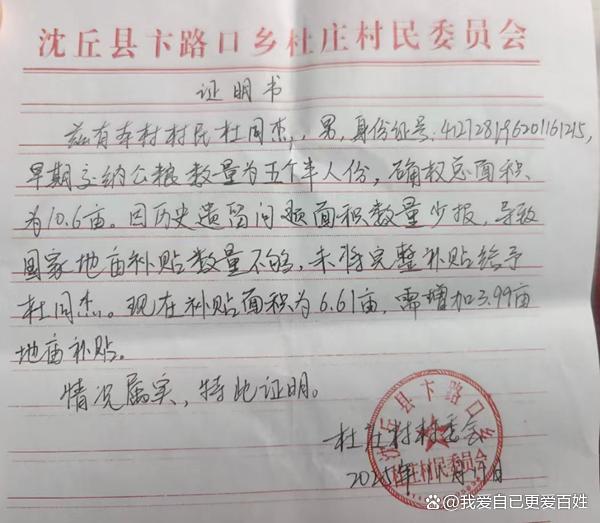 沈丘县卞路口乡杜庄村民委员会
证明书
兹有本村村民杜同杰，男，身份证号：412728196201161215，
早期交纳公粮数量为五个半人份，确权总面积
为10.6亩。因历史遗留问题面积数量少报，导致
国家地亩补贴数量不够，未将完整补贴给予
杜同杰。现在补贴面积为6.61亩，需增加3.99亩
地亩补贴。
情况属实，特此证明。
杜庄村村委会
2025年 月 日
沈丘县卞路口乡
杜庄村民委员会
@我爱自已更爱百姓